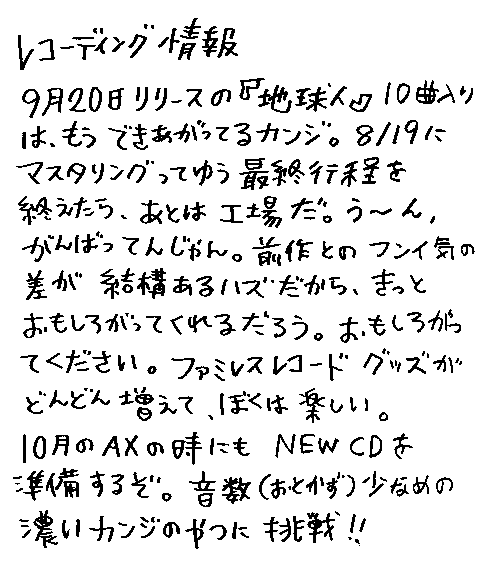 レコーディング情報
9月20日リリースの『地球人』10曲入り
は、もう できあがってるカンジ。8/19に
マスタリングってゆう 最終行程を
終えたら、あとは 工場だ。う〜ん、
がんばってんじゃん。前作との フンイ気の
差が 結構あるハズだから、きっと
おもしろがってくれるだろう。おもしろがっ
てください。ファミレスレコード グッズが
どんどん 増えて、ぼくは 楽しい。
10月のAXの時にも NEW CDを
準備するぞ。音数(おとかず)少なめの
濃いカンジのやつに 挑戦!!